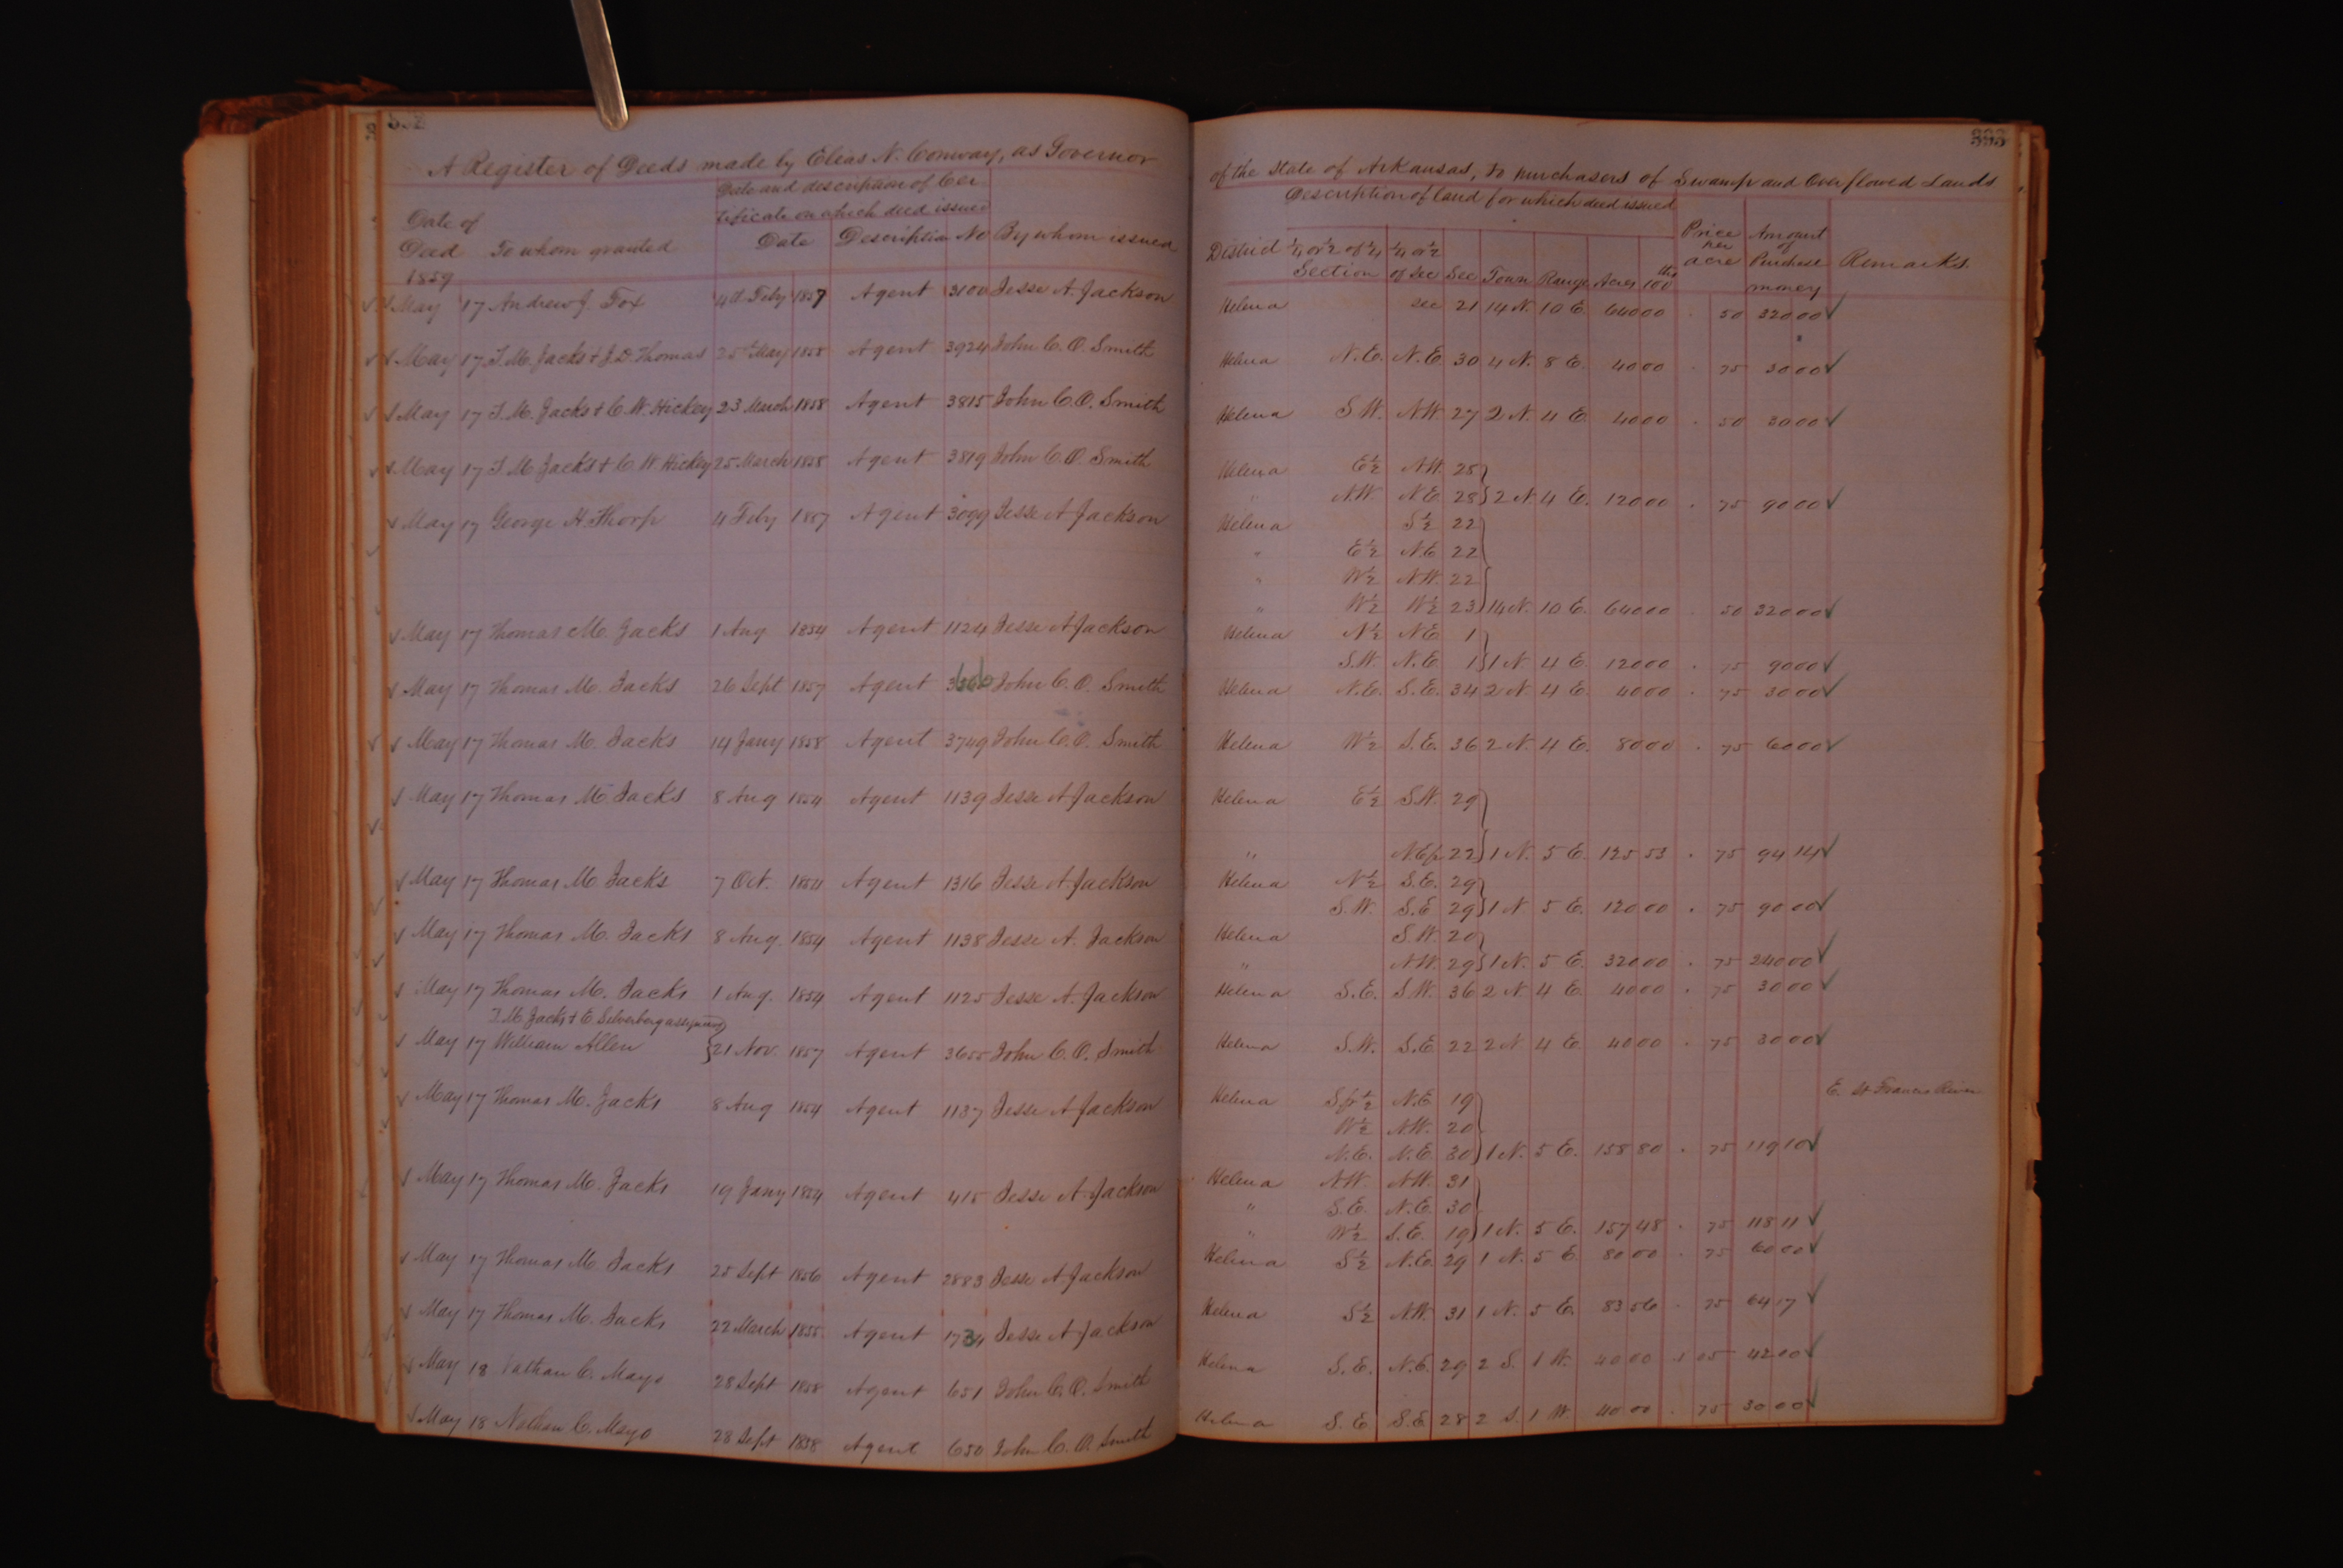 A Register of Deeds made by Elias N. Conway, as Governor
Date and description of Cer
tificate on which deed issued
Date of
Deed To whom granted Date Description No By whom issued
1859
May 17 Andrew J. Fox 4th Feby 1857 Agent 3100 Jesse A. Jackson
May 17 T. M. Jacks & J. D. Thomas 25th May 1858 Agent 3924 John C. O. Smith
May 17 T. M. Jacks & C. W. Hickey 23 March 1858 Agent 3815 John C. O. Smith
May 17 T. M. Jacks & C. W. Hickey 25 March 1858 Agent 3819 John C. O. Smith
May 17 George H. Thorp 4 Feby 1857 Agent 3099 Jesse A Jackson
May 17 Thomas M. Jacks 1 Aug 1854 Agent 1124 Jesse A Jackson
May 17 Thomas M. Jacks 26 Sept 1857 Agent John C. O. Smith
May 17 Thomas M. Jacks 14 Jany 1858 Agent 3749 John C. O. Smith
May 17 Thomas M. Jacks 8 Aug 1854 Agent 1139 Jesse A Jackson
May 17 Thomas M. Jacks 7 Oct. 1854 Agent 1316 Jesse A Jackson
May 17 Thomas M. Jacks 8 Aug. 1854 Agent 1138 Jesse A. Jackson
May 17 Thomas M. Jacks 1 Aug. 1854 Agent 1125 Jesse A. Jackson
T. M. Jacks & E Silverberg assignees
May 17 William Allen 21 Nov. 1857 Agent 3655 John C. O. Smith
May 17 Thomas M. Jacks 8 Aug 1854 Agent 1137 Jesse A Jackson
May 17 Thomas M. Jacks 19 Jany 1854 Agent 415 Jesse A Jackson
May 17 Thomas M. Jacks 25 Sept 1856 Agent 2883 Jesse A Jackson
May 17 Thomas M. Jacks 22 March 1855 Agent Jesse A Jackson
May 18 Nathan C. Mayo 28 Sept 1858 Agent 651 John C. O. Smith
May 18 Nathan C. Mayo 28 Sept 1858 Agent 650 John C. O. Smith
333
of the State of Arkansas, to purchasers of Swamp and Overflowed Lands
Description of land for which deed issued
District ¼ or ½ of ¼ Section ¼ or ½ of Sec Sec Town Range Acres 100ths Price per acre Amount of Purchase money Remarks.
Helena sec 21 14 N. 10 E. 640 00 50 320 00
Helena N.E. N.E. 30 4 N. 8 E. 40 00 75 30 00
Helena S.W. N.W. 27 2 N. 4 E. 40 00 50 30 00
Helena E½ N.W. 28
" N.W. N.E. 28 2 N. 4 E. 120 00 75 90 00
Helena S½ 22
" E½ N.E 22
" W½ N.W. 22
" W½ W½ 23 14 N. 10 E. 640 00 50 320 00
Helena N½ N.E 1
S.W. N.E 1 1 N. 4 E. 120 00 75 90 00
Helena N.E. S.E. 34 2 N. 4 E. 40 00 75 30 00
Helena W½ S.E. 36 2 N. 4 E. 80 00 75 60 00
Helena E½ S.W. 29
" N.E fr 22 1 N. 5 E. 125 53 75 94 14
Helena N½ S.E. 29
S.W. S.E 29 1 N 5 E. 120 00 75 90 00
Helena S.W. 20
" N.W. 29 1 N. 5 E. 320 00 75 240 00
Helena S.E. S.W. 36 2 N. 4 E. 40 00 75 30 00
Helena S.W. S.E 22 2 N. 4 E. 40 00 75 30 00
Helena S fr ½ N.E 19 E. St Francis River
W½ N.W. 20
N.E. N.E. 30 1 N. 5 E. 158 80 75 119 10
Helena N.W. N.W. 31
" S.E. N.E. 30
" W½ S.E. 19 1 N. 5 E. 157 48 75 118 11
Helena S½ N.E. 29 1 N. 5 E. 80 00 75 60 00
Helena S½ N.W. 31 1 N. 5 E. 83 56 75 64 17
Helena S.E. N.E. 29 2 S. 1 W. 40 00 1 05 42 00
Helena S.E S.E 28 2 S. 1 W. 40 00 75 30 00